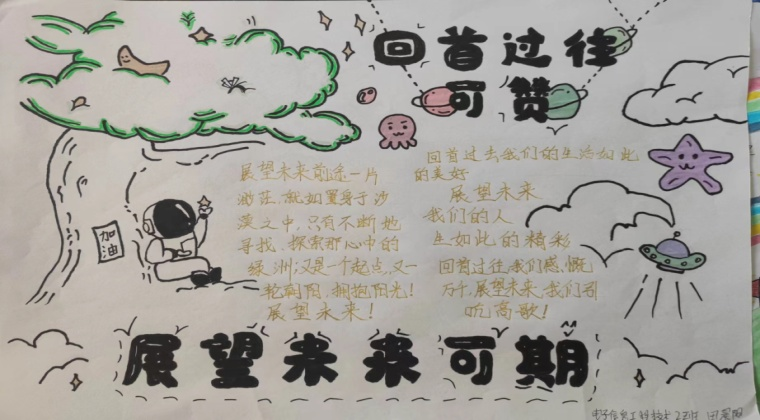 回首过往
可赞
加油
展望未来前途一片
渺茫,就如置身于沙
漠之中,只有不断地
寻找、探索那心中的
绿洲;又是一个起点,又一
轮朝阳,拥抱阳光!
展望未来!
回首过去我们的生活如此
的美好
展望未来
我们的人
生如此的精彩
回首过往,我们感慨
万千,展望未来,我们引
吭高歌!
展望未来可期